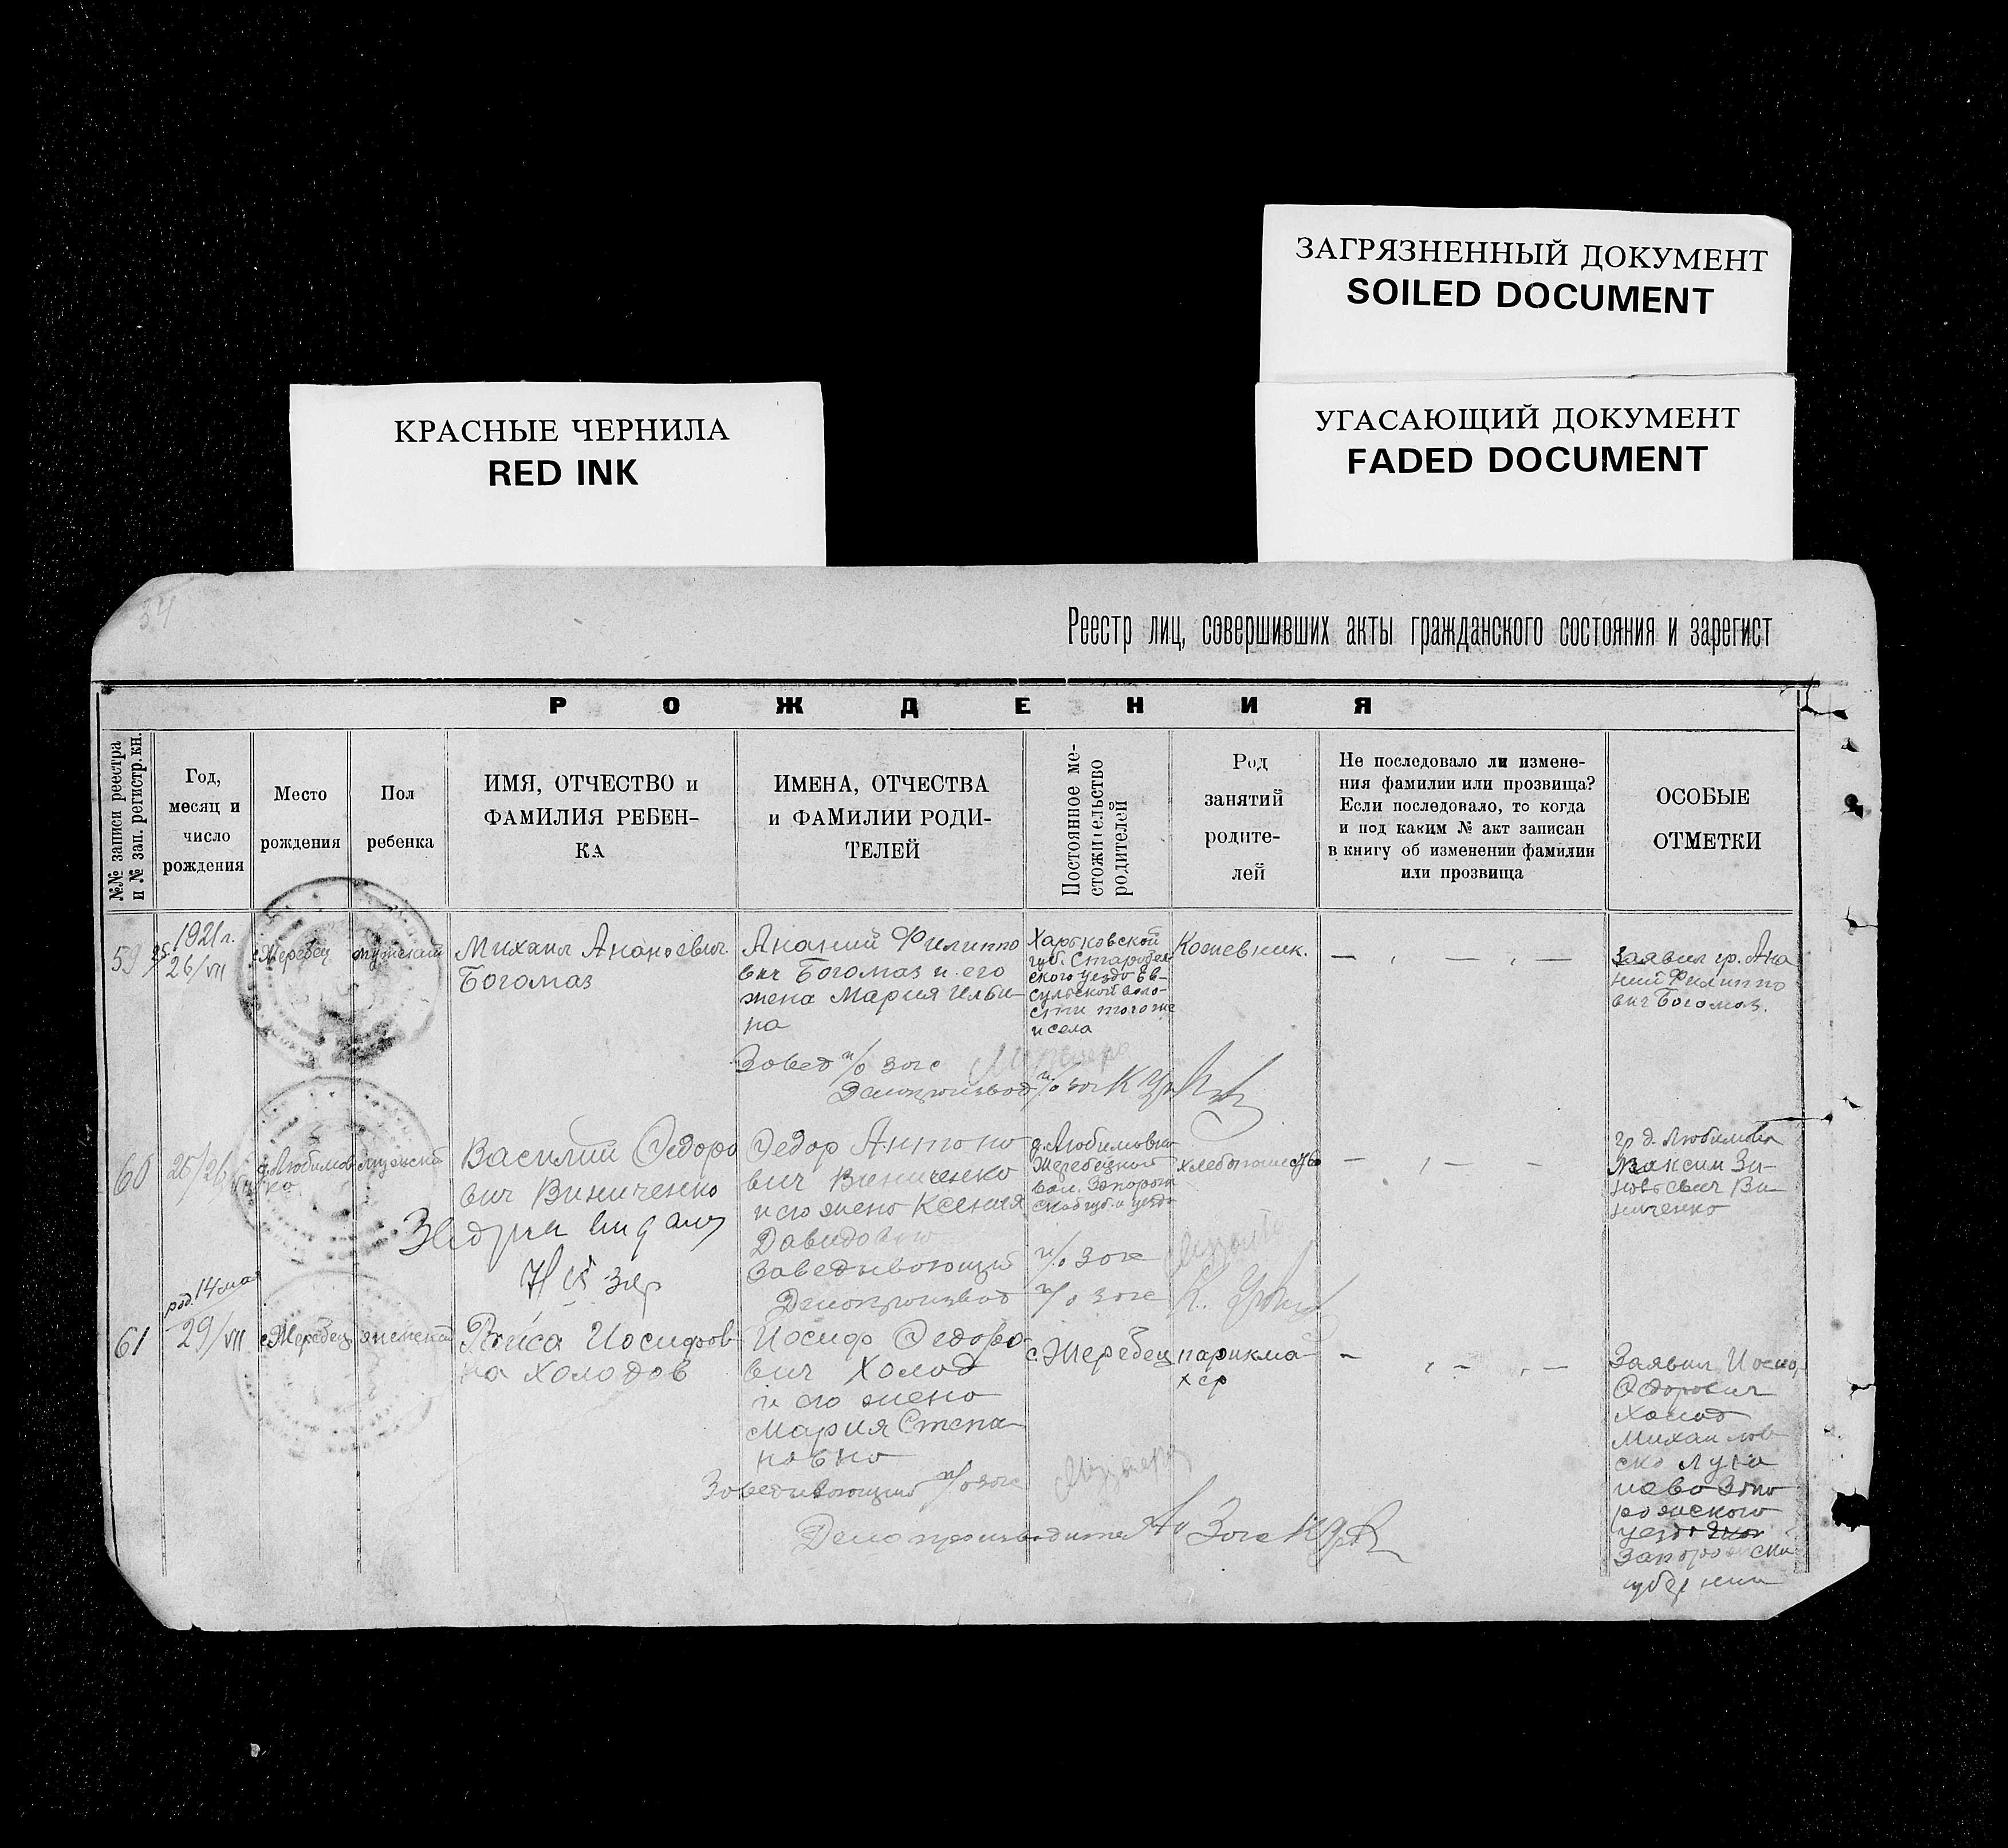 ЗАГРЯЗНЕННЫЙ ДОКУМЕНТ
SOILED DOCUMENT
КРАСНЫЕ ЧЕРНИЛА
RED INK
УГАСАЮЩИЙ ДОКУМЕНТ
FADED DOCUMENT
34
Реестр лиц, совершивших акты гражданского состояния и зарегист
РОЖДЕНИЯ
№№ записи реестра
и № зап. регистр. кн.
Год,
месяц и
число
рождения
Место
рождения
Пол
ребенка
ИМЯ, ОТЧЕСТВО и
ФАМИЛИЯ РЕБЕН-
КА
ИМЕНА, ОТЧЕСТВА
и ФАМИЛИИ РОДИ-
ТЕЛЕЙ
Постоянное ме-
стожительство
родителей
Род
занятий
родите-
лей
Не последовало ли измене-
ния фамилии или прозвища?
Если последовало, то когда
и под каким № акт записан
в книгу об изменении фамилии
или прозвища
ОСОБЫЕ
ОТМЕТКИ
59
1921 г.
26/VII
с Жеребец
мужский
Михаил Ананьевич
Богомаз
Ананий Филиппо
вич Богомаз и его
жена Мария Ильи-
на
Харьковской
губ. Старобел
ского уезда Ев-
сугской воло-
сти того же
и села
Кожевник.
— , — , —
Заявил гр. Ана
ний Филиппо
вич Богомаз.
Завед п/о загс
Делопроизвод п/о загс
60
25/26
д. Любимов
ка
мужской
Василий Федоро
вич Виниченко
Федор Антоно
вич Виниченко
и его жена Ксения
Давидовна
д. Любимовка
Жеребецкой
вол. Запорож
ской губ. и уезда
хлебопашество
— , — —
гр д. Любимовка
Максим Зи-
новьевич Ви-
ниченко
Заведывающий п/о загс
Делопроизвод п/о загс
61
род. 14 мая
29/VII
с. Жеребец
женский
Раиса Иосифов
на Холодов
Иосиф Федоро-
вич Холод
и его жена
Мария Степа-
новна
с. Жеребец
парикма-
хер
— , — , —
Заявил Иосиф
Федорович
Холод
Михайлов
ско
Запо
рожского
уезда
Запорожской
губернии
Заведывающий п/о загс
Делопроизводитель п/о Загс